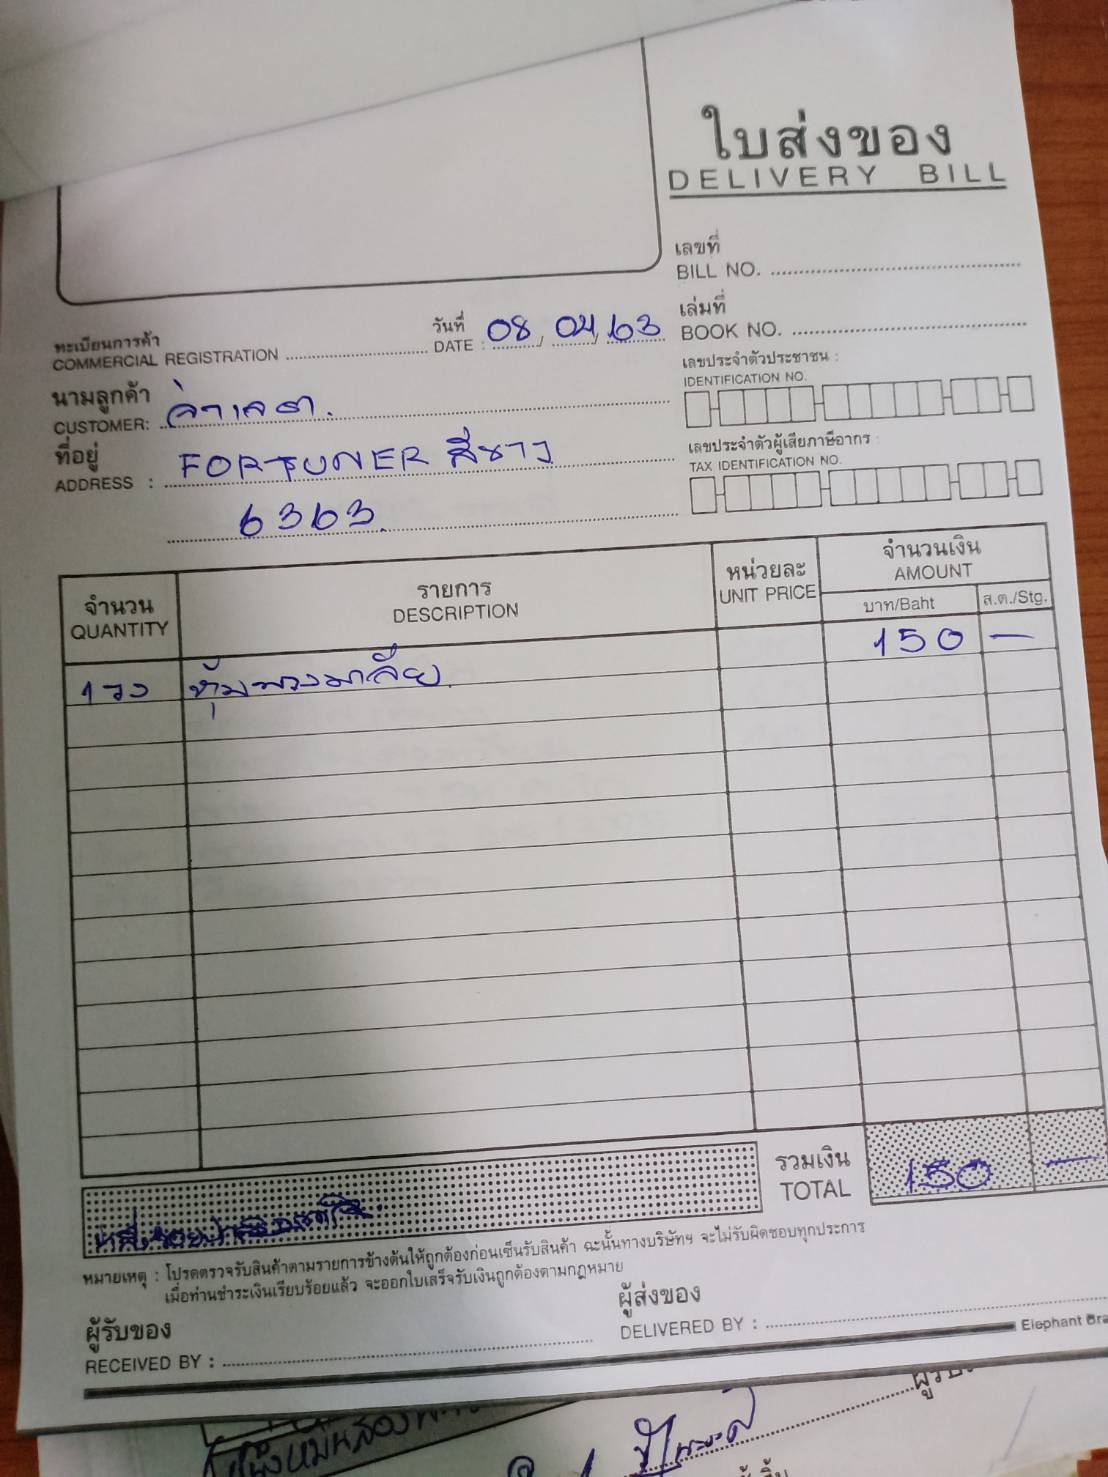 ใบส่งของ
DELIVERY BILL
เลขที่
BILL NO.
เล่มที่
BOOK NO.
ทะเบียนการค้า
COMMERCIAL REGISTRATION
วันที่
DATE : 08, 04, 63
เลขประจำตัวประชาชน :
IDENTIFICATION NO.
นามลูกค้า
CUSTOMER:
ที่อยู่
ADDRESS : FORTUNER สีขาว
6363
เลขประจำตัวผู้เสียภาษีอากร :
TAX IDENTIFICATION NO.
จำนวน
QUANTITY
รายการ
DESCRIPTION
หน่วยละ
UNIT PRICE
จำนวนเงิน
AMOUNT
บาท/Baht ส.ต./Stg.
1 วง หุ้มพวงมาลัย 150 —
รวมเงิน
TOTAL 150 —
หมายเหตุ : โปรดตรวจรับสินค้าตามรายการข้างต้นให้ถูกต้องก่อนเซ็นรับสินค้า ฉะนั้นทางบริษัทฯ จะไม่รับผิดชอบทุกประการ
เมื่อท่านชำระเงินเรียบร้อยแล้ว จะออกใบเสร็จรับเงินถูกต้องตามกฎหมาย
ผู้รับของ
RECEIVED BY :
ผู้ส่งของ
DELIVERED BY :
Elephant Bra